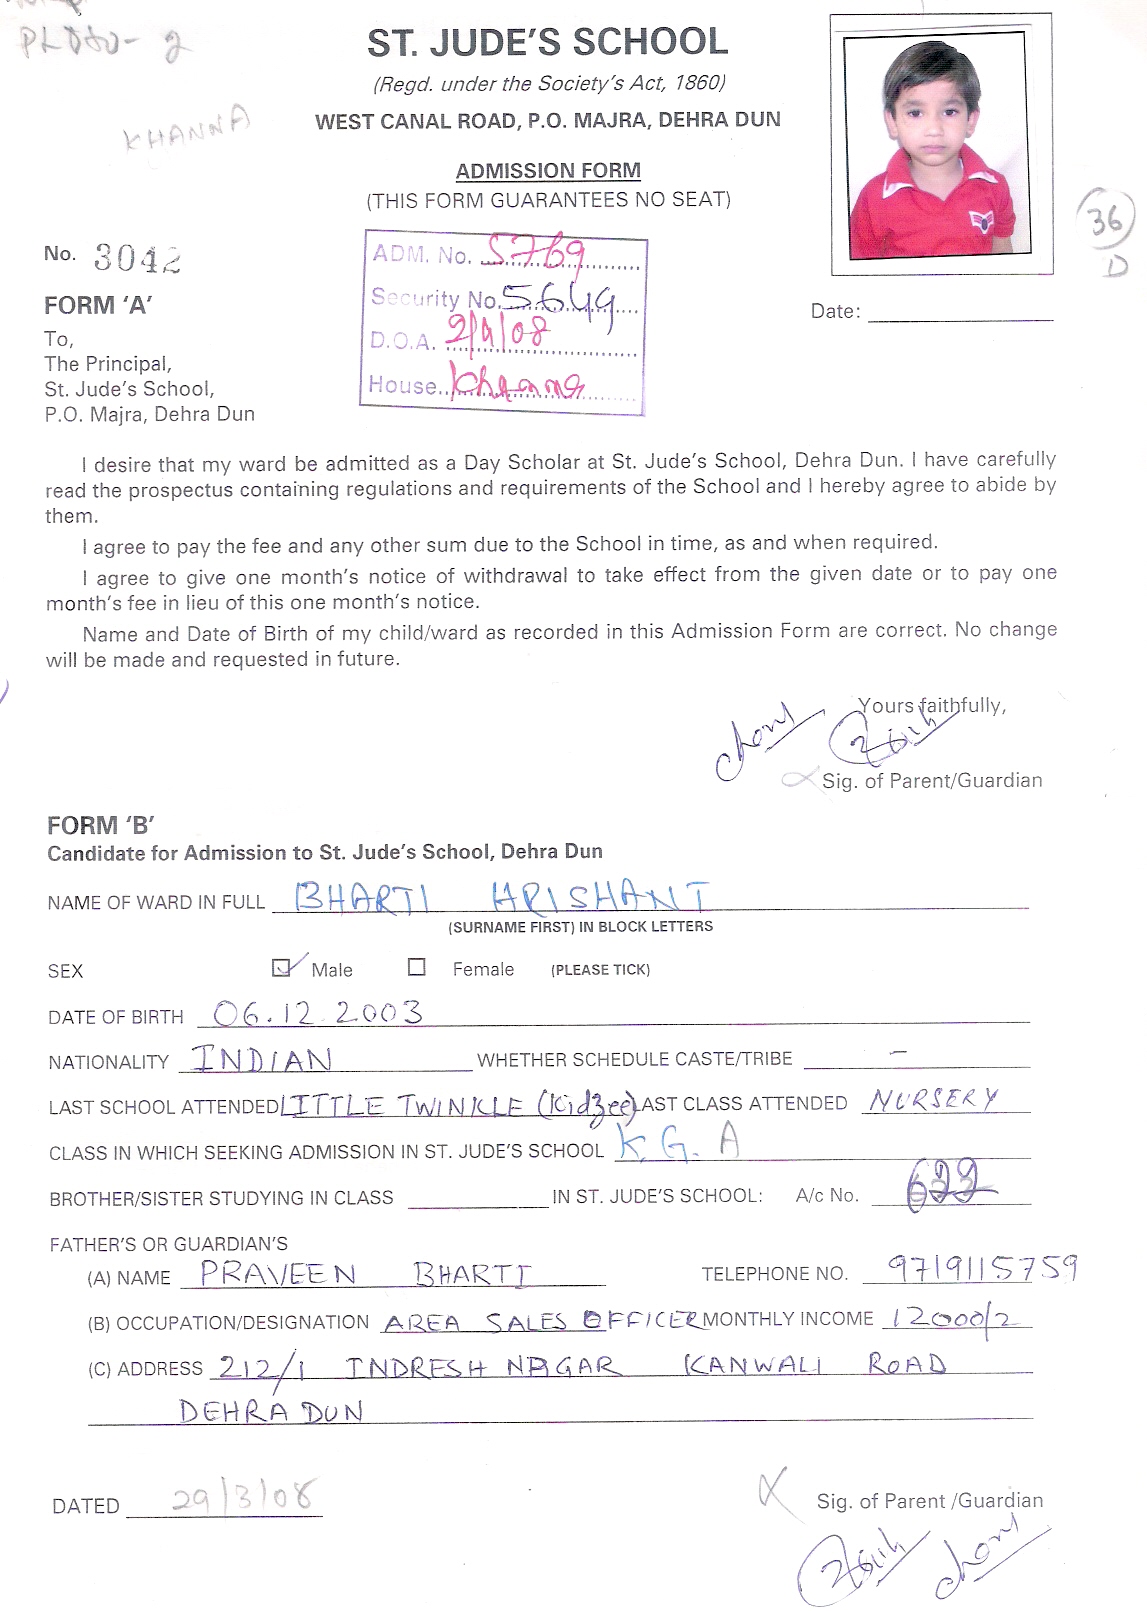 ST. JUDE'S SCHOOL
(Regd. under the Society's Act, 1860)
WEST CANAL ROAD, P.O. MAJRA, DEHRA DUN
KHANNA
ADMISSION FORM
(THIS FORM GUARANTEES NO SEAT)
36
D
No. 3042
ADM. No. 5769
Security No. 5649
D.O.A. 2/4/08
House Khanna
FORM 'A'
Date:
To,
The Principal,
St. Jude's School,
P.O. Majra, Dehra Dun
I desire that my ward be admitted as a Day Scholar at St. Jude's School, Dehra Dun. I have carefully
read the prospectus containing regulations and requirements of the School and I hereby agree to abide by
them.
I agree to pay the fee and any other sum due to the School in time, as and when required.
I agree to give one month's notice of withdrawal to take effect from the given date or to pay one
month's fee in lieu of this one month's notice.
Name and Date of Birth of my child/ward as recorded in this Admission Form are correct. No change
will be made and requested in future.
Yours faithfully,
Sig. of Parent/Guardian
FORM 'B'
Candidate for Admission to St. Jude's School, Dehra Dun
NAME OF WARD IN FULL BHARTI HRISHANT
(SURNAME FIRST) IN BLOCK LETTERS
SEX Male Female (PLEASE TICK)
DATE OF BIRTH 06.12.2003
NATIONALITY INDIAN WHETHER SCHEDULE CASTE/TRIBE –
LAST SCHOOL ATTENDED LITTLE TWINKLE (Kidzee) LAST CLASS ATTENDED NURSERY
CLASS IN WHICH SEEKING ADMISSION IN ST. JUDE'S SCHOOL K.G. A
BROTHER/SISTER STUDYING IN CLASS IN ST. JUDE'S SCHOOL: A/c No.
FATHER'S OR GUARDIAN'S
(A) NAME PRAVEEN BHARTI TELEPHONE NO. 9719115759
(B) OCCUPATION/DESIGNATION AREA SALES OFFICER MONTHLY INCOME 12000/2
(C) ADDRESS 212/1 INDRESH NAGAR KANWALI ROAD
DEHRA DUN
DATED 29/3/08
Sig. of Parent /Guardian